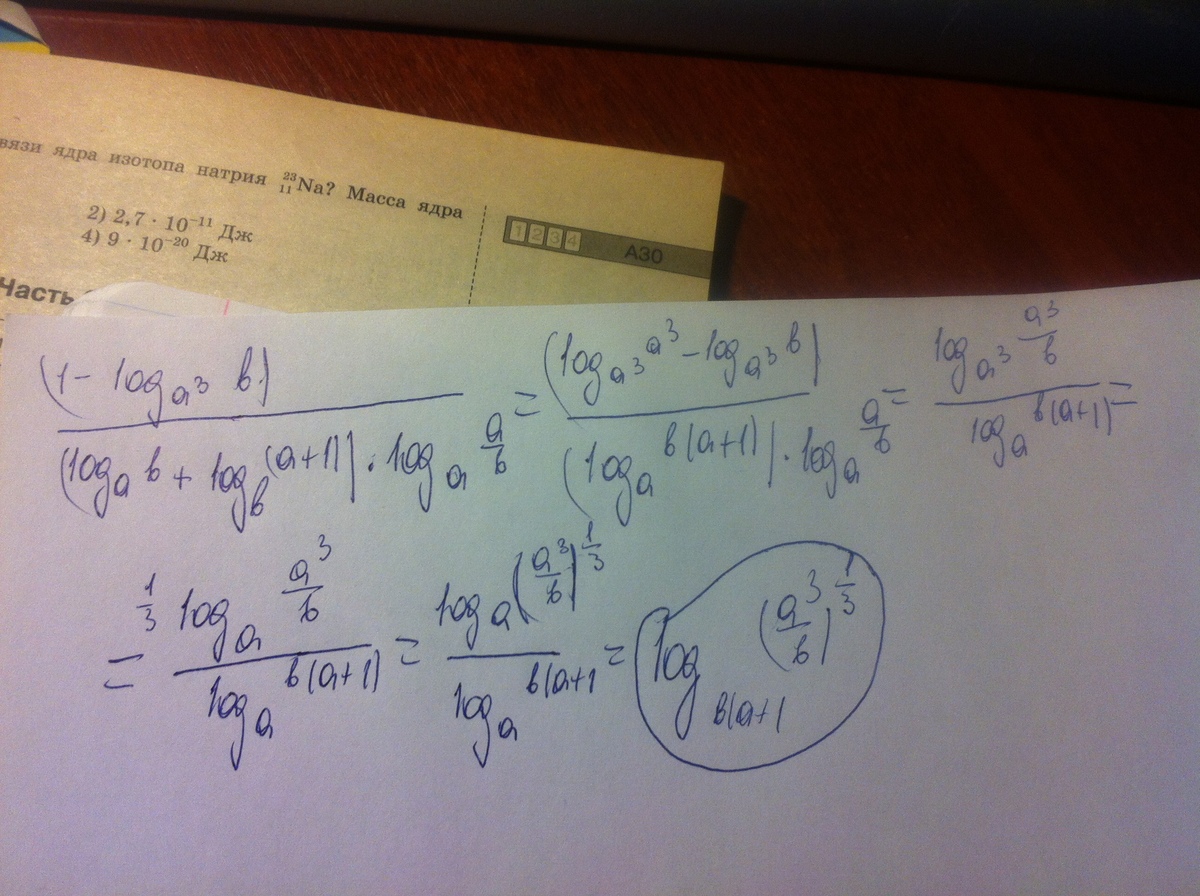 вязи ядра изотопа натрия ²³₁₁Na? Масса ядра
2) 2,7 · 10⁻¹¹ Дж
4) 9 · 10⁻²⁰ Дж
1 2 3 4 А30
Часть
(1 - log_{a³} b) / ((log_a b + log_b (a+1)) · log_a a/b) = (log_{a³} a³ - log_{a³} b) / ((log_a b(a+1)) · log_a a/b) = log_{a³} a³/b / log_a b(a+1) =
= 1/3 log_a a³/b / log_a b(a+1) = log_a (a³/b)^{1/3} / log_a b(a+1 = log_{b(a+1} (a³/b)^{1/3}